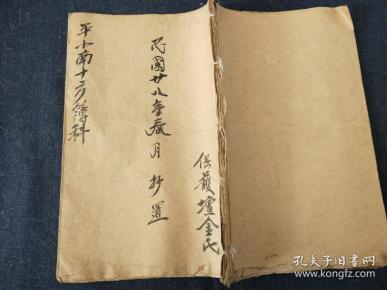 保護壇金氏
民國廿八年春月抄置
平小南十方簿科
孔夫子旧书网
kongfz.com